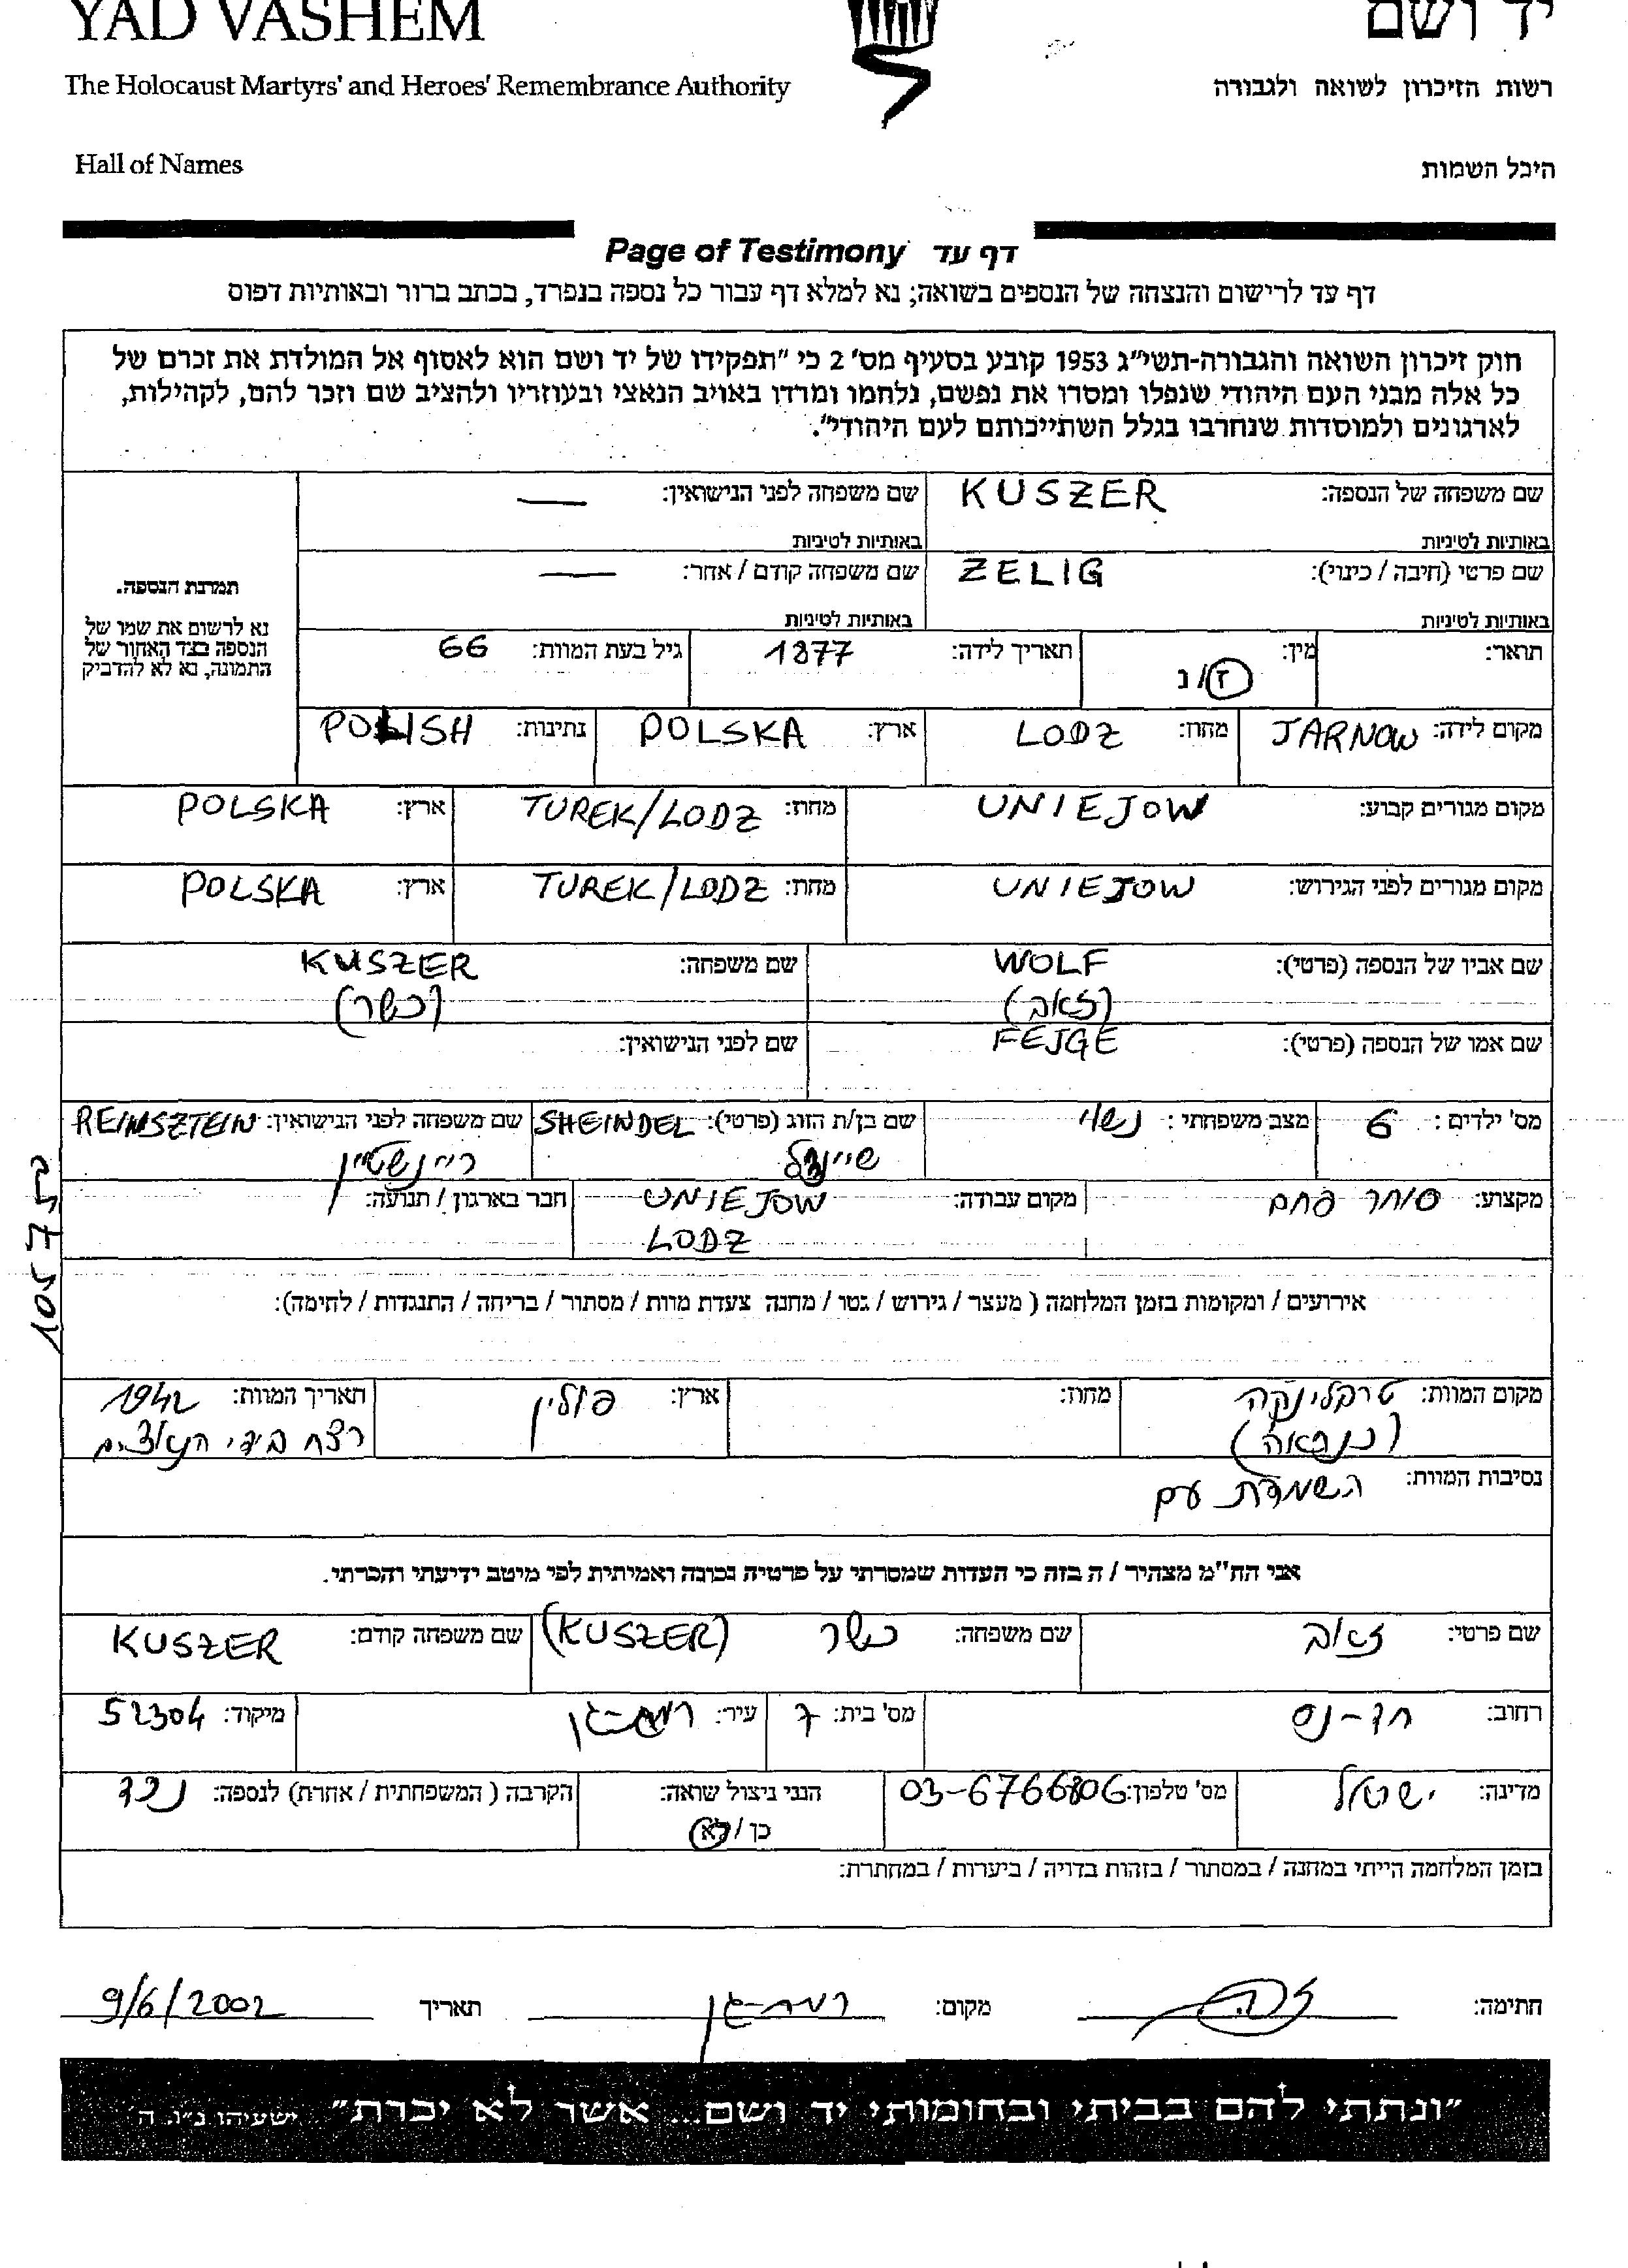 YAD VASHEM
יד ושם
The Holocaust Martyrs' and Heroes' Remembrance Authority
רשות הזיכרון לשואה ולגבורה
Hall of Names
היכל השמות
Page of Testimony דף עד
דף עד לרישום והנצחה של הנספים בשואה; נא למלא דף עבור כל נספה בנפרד, בכתב ברור ובאותיות דפוס
חוק זיכרון השואה והגבורה-תשי"ג 1953 קובע בסעיף מס' 2 כי "תפקידו של יד ושם הוא לאסוף אל המולדת את זכרם של
כל אלה מבני העם היהודי שנפלו ומסרו את נפשם, נלחמו ומרדו באויב הנאצי ובעוזריו ולהציב שם וזכר להם, לקהילות,
לארגונים ולמוסדות שנחרבו בגלל השתייכותם לעם היהודי".
שם משפחה של הנספה: KUSZER שם משפחה לפני הנישואין: —
באותיות לטיניות באותיות לטיניות
שם פרטי (חיבה / כינוי): ZELIG שם משפחה קודם / אחר: —
באותיות לטיניות באותיות לטיניות
תמונת הנספה.
נא לרשום את שמו של
הנספה בצד האחור של
התמונה, נא לא להדביק
תואר: מין: ז/נ תאריך לידה: 1877 גיל בעת המוות: 66
מקום לידה: JARNOW מחוז: LODZ ארץ: POLSKA נתינות: POLISH
מקום מגורים קבוע: UNIEJOW מחוז: TUREK/LODZ ארץ: POLSKA
מקום מגורים לפני הגירוש: UNIEJOW מחוז: TUREK/LODZ ארץ: POLSKA
שם אביו של הנספה (פרטי): WOLF שם משפחה: KUSZER
(זאב) (כשר)
שם אמו של הנספה (פרטי): FEJGE שם לפני הנישואין:
מס' ילדים: 6 מצב משפחתי: נשוי שם בן/ת הזוג (פרטי): SHEINDEL שם משפחה לפני הנישואין: REINSZTEIN
שיינדל ריינשטיין
מקצוע: סוחר פחם מקום עבודה: UNIEJOW חבר בארגון / תנועה:
LODZ
אירועים / ומקומות בזמן המלחמה ( מעצר / גירוש / גטו / מחנה צעדת מוות / מסתור / בריחה / התנגדות / לחימה):
מקום המוות: טרבלינקה מחוז: ארץ: פולין תאריך המוות: 1942
(כנראה) רצח בידי הנאצים
נסיבות המוות: השמדת עם
אני הח"מ מצהיר / ה בזה כי העדות שמסרתי על פרטיה נכונה ואמיתית לפי מיטב ידיעתי והכרתי.
שם פרטי: זאב שם משפחה: כשר (KUSZER) שם משפחה קודם: KUSZER
רחוב: חד-נס מס' בית: 7 עיר: רמת-גן מיקוד: 52304
מדינה: ישראל מס' טלפון: 03-6766806 הנני ניצול שואה: הקרבה ( המשפחתית / אחרת) לנספה: נכד
כן / לא
בזמן המלחמה הייתי במחנה / במסתור / בזהות בדויה / ביערות / במחתרת:
חתימה: מקום: רמת-גן תאריך 9/6/2002
"ונתתי להם בביתי ובחומותי יד ושם... אשר לא יכרת" ישעיהו נ"ו, ה'